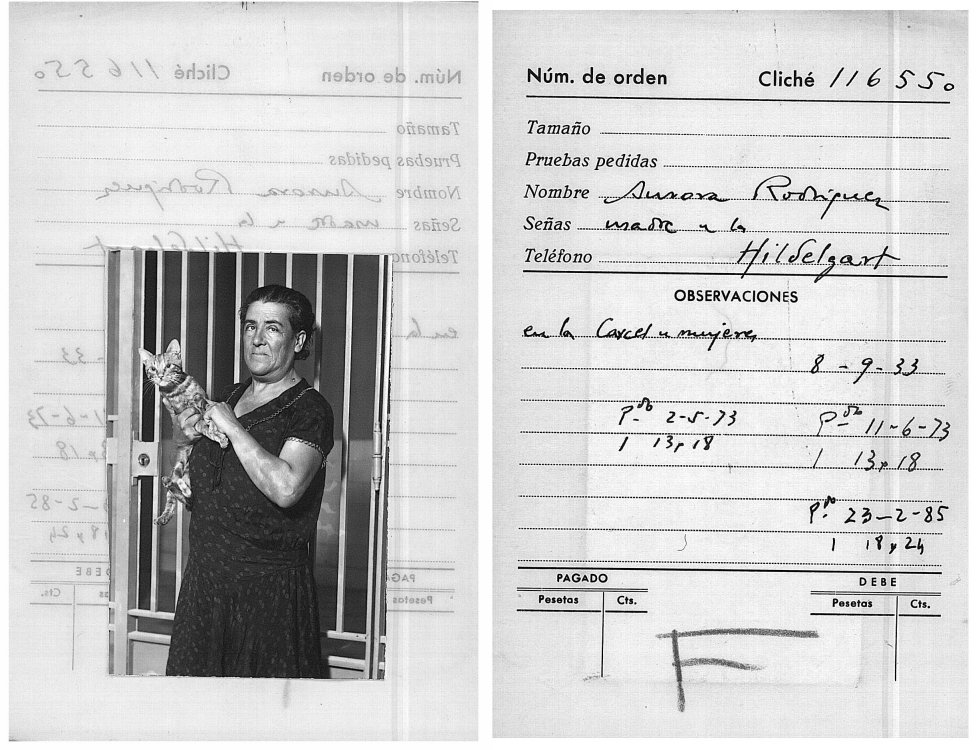 Núm. de orden Cliché 116550
Tamaño
Pruebas pedidas
Nombre Aurora Rodriguez
Señas madre de la
Teléfono Hildelgart
OBSERVACIONES
en la Carcel de mujeres
8 - 9 - 33
P. do 2-5-73 P. do 11-6-73
1 13 x 18 1 13 x 18
P. do 23-2-85
1 18 x 24
PAGADO DEBE
Pesetas Cts. Pesetas Cts.
F